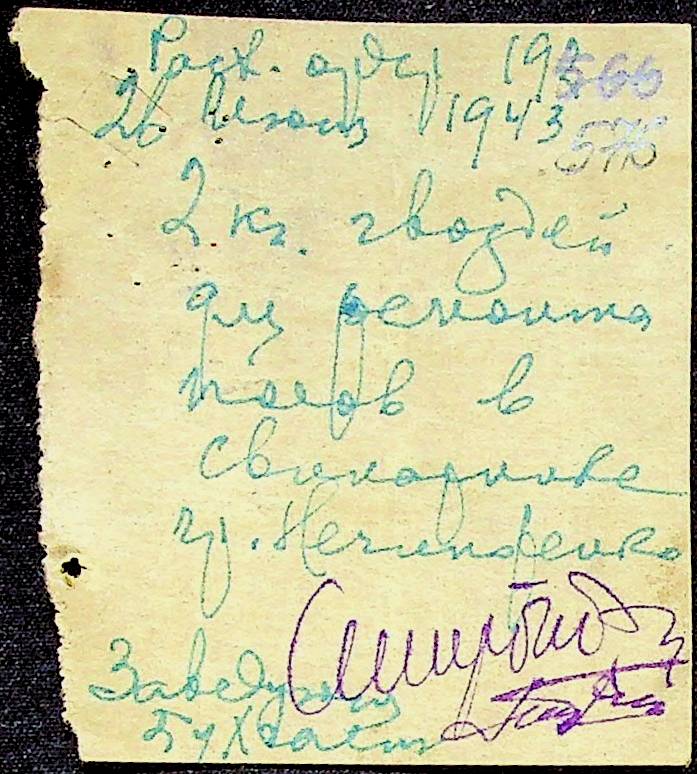 Расх. ордер 19
566
26 Июня 1943
576
2 кг. гвоздей
для ремонта
полов в
свинарнике
гр. Нечипоренко
Заведующий
Бухгалтер